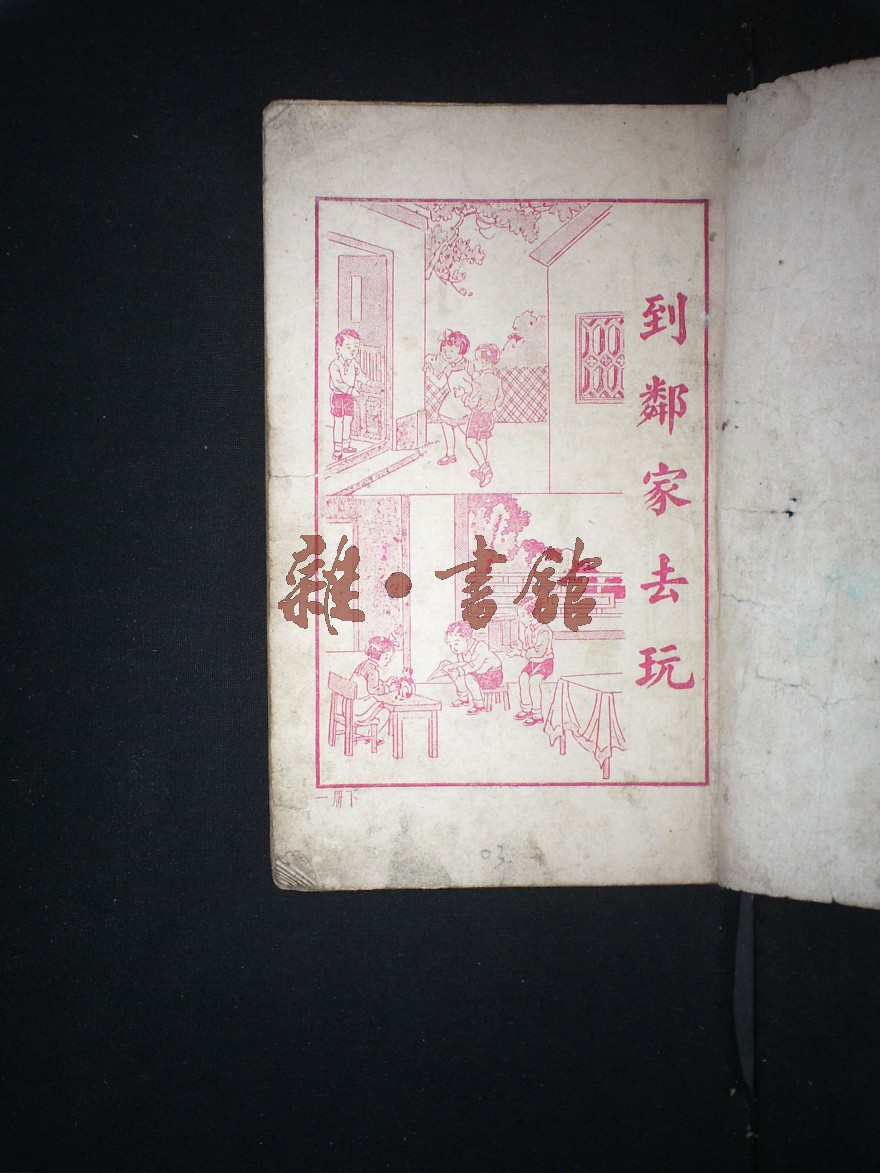 到鄰家去玩
雜·書館
一册下
03